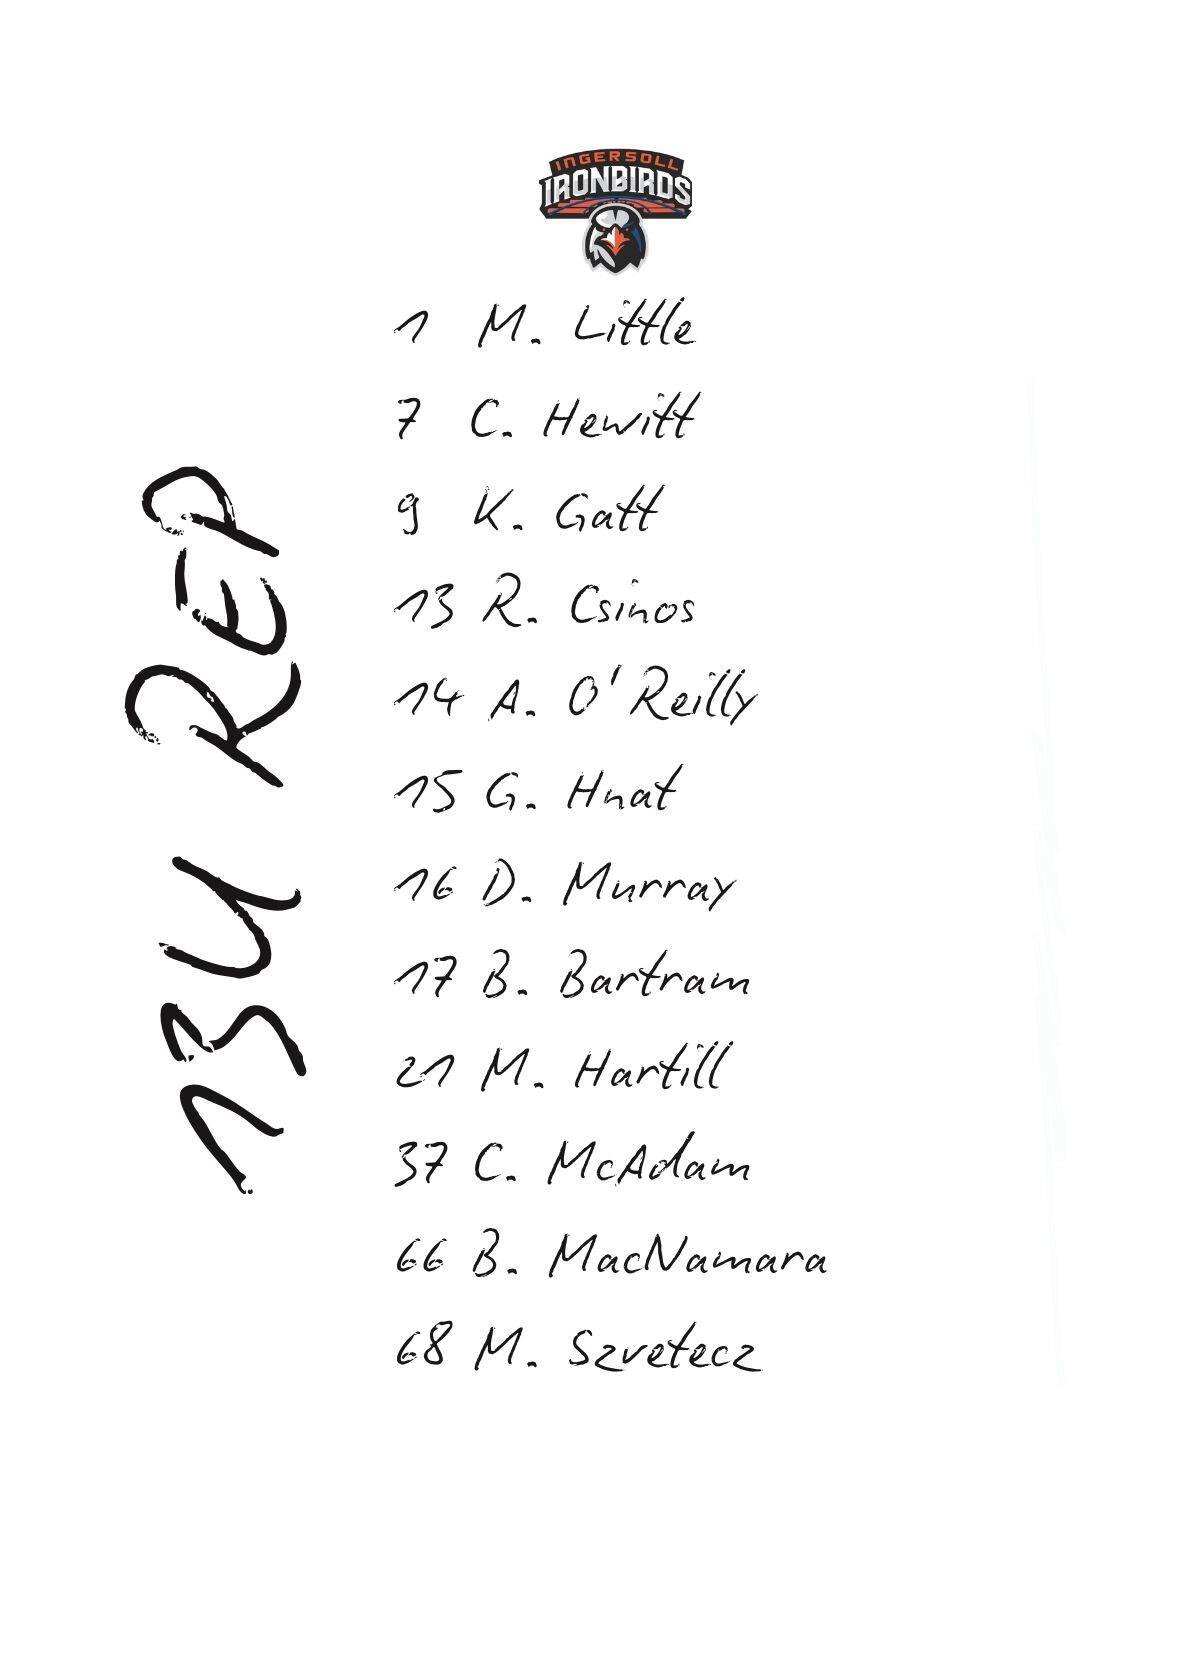 INGERSOLL
IRONBIRDS
13U REP
1 M. Little
7 C. Hewitt
9 K. Gatt
13 R. Csinos
14 A. O'Reilly
15 G. Hnat
16 D. Murray
17 B. Bartram
21 M. Hartill
37 C. McAdam
66 B. MacNamara
68 M. Szvetecz